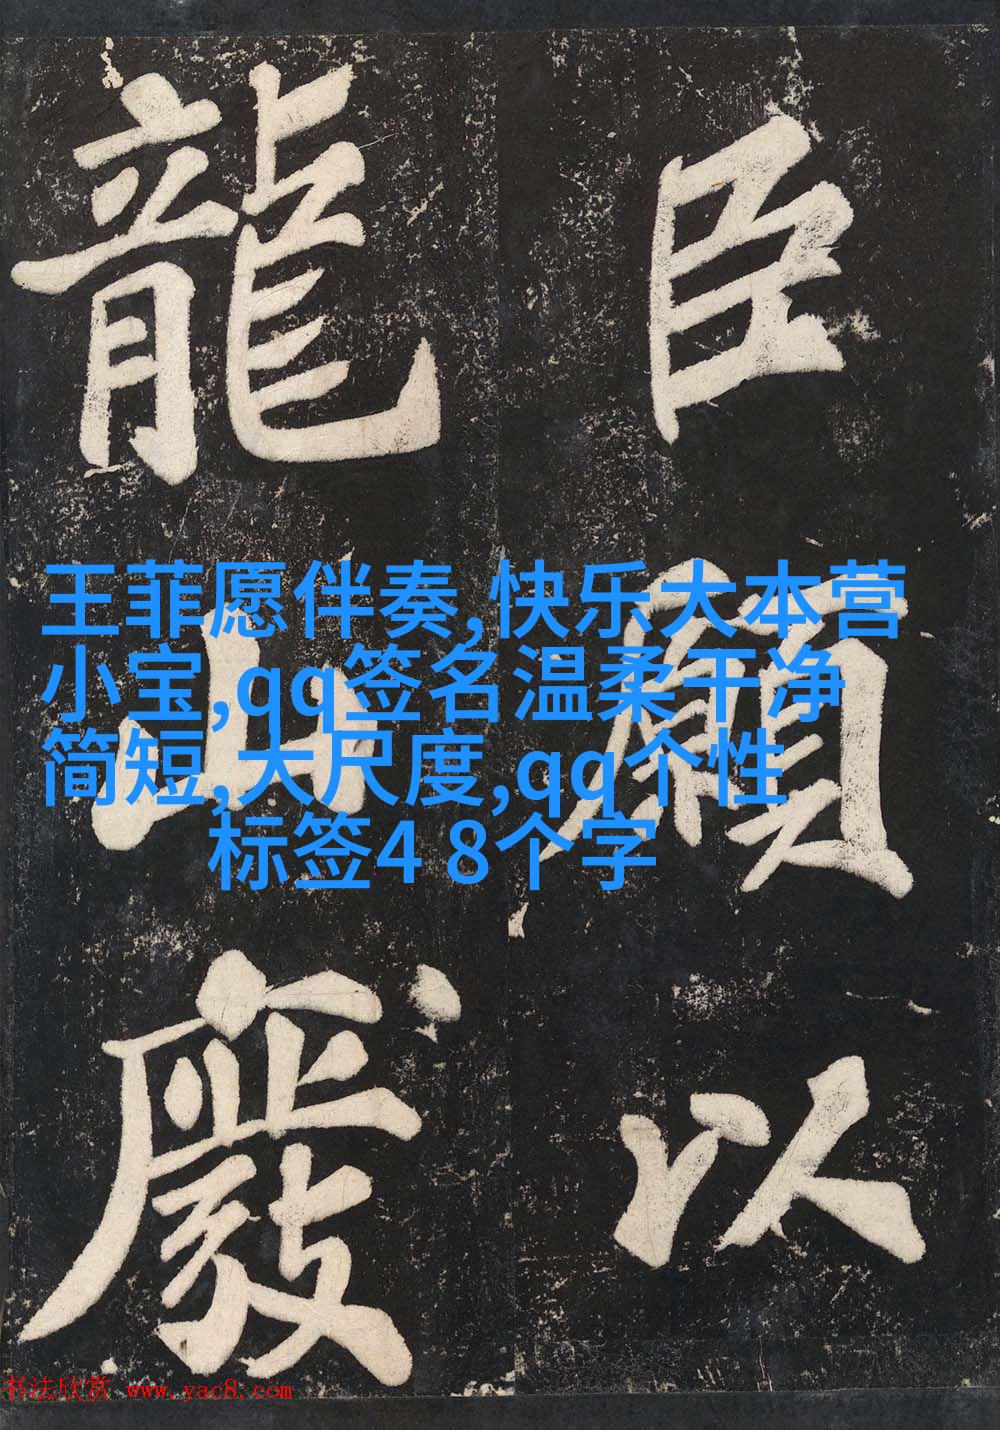 臣願以
龍山嚴
王菲愿伴奏,快乐大本营
小宝,qq签名温柔干净
简短,大尺度,qq个性
标签4 8个字
书法欣赏 www.yac8.com